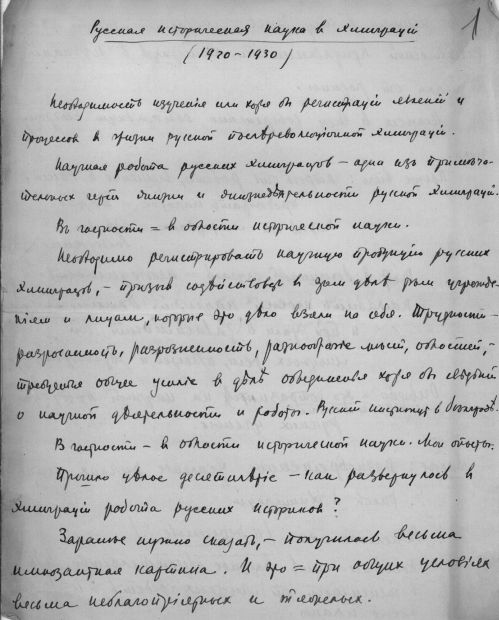 1
Русская историческая наука в эмиграціи
(1920-1930)
Необходимость изученія или хотя бы регистраціи явленій и
процессов в жизни русской послѣреволюціонной эмиграціи.
Научная работа русских эмигрантов – одна изъ примѣча-
тельных черт жизни и дѣятельности русской эмиграціи.
Въ частности = в области исторической науки.
Необходимо регистрировать научную продукцію русских
эмигрантов, – призыв содѣйствовать в этом дѣлѣ тѣм учрежде-
ніям и лицам, которые это дѣло взяли на себя. Трудности –
разбросанность, разрозненность, разнообразіе мѣст, областей, –
требуется общее усиліе в дѣлѣ объединенія хотя бы свѣдѣній
о научной дѣятельности и работѣ. Русскій институт в Бѣлградѣ.
В частности – в области исторической науки. Мои опыты.
Прошло цѣлое десятилѣтіе – как развернулась в
эмиграціи работа русских историков?
Заранѣе нужно сказать, – получилась весьма
импозантная картина. И это = при общих условіях
весьма неблагопріятных и тяжелых.